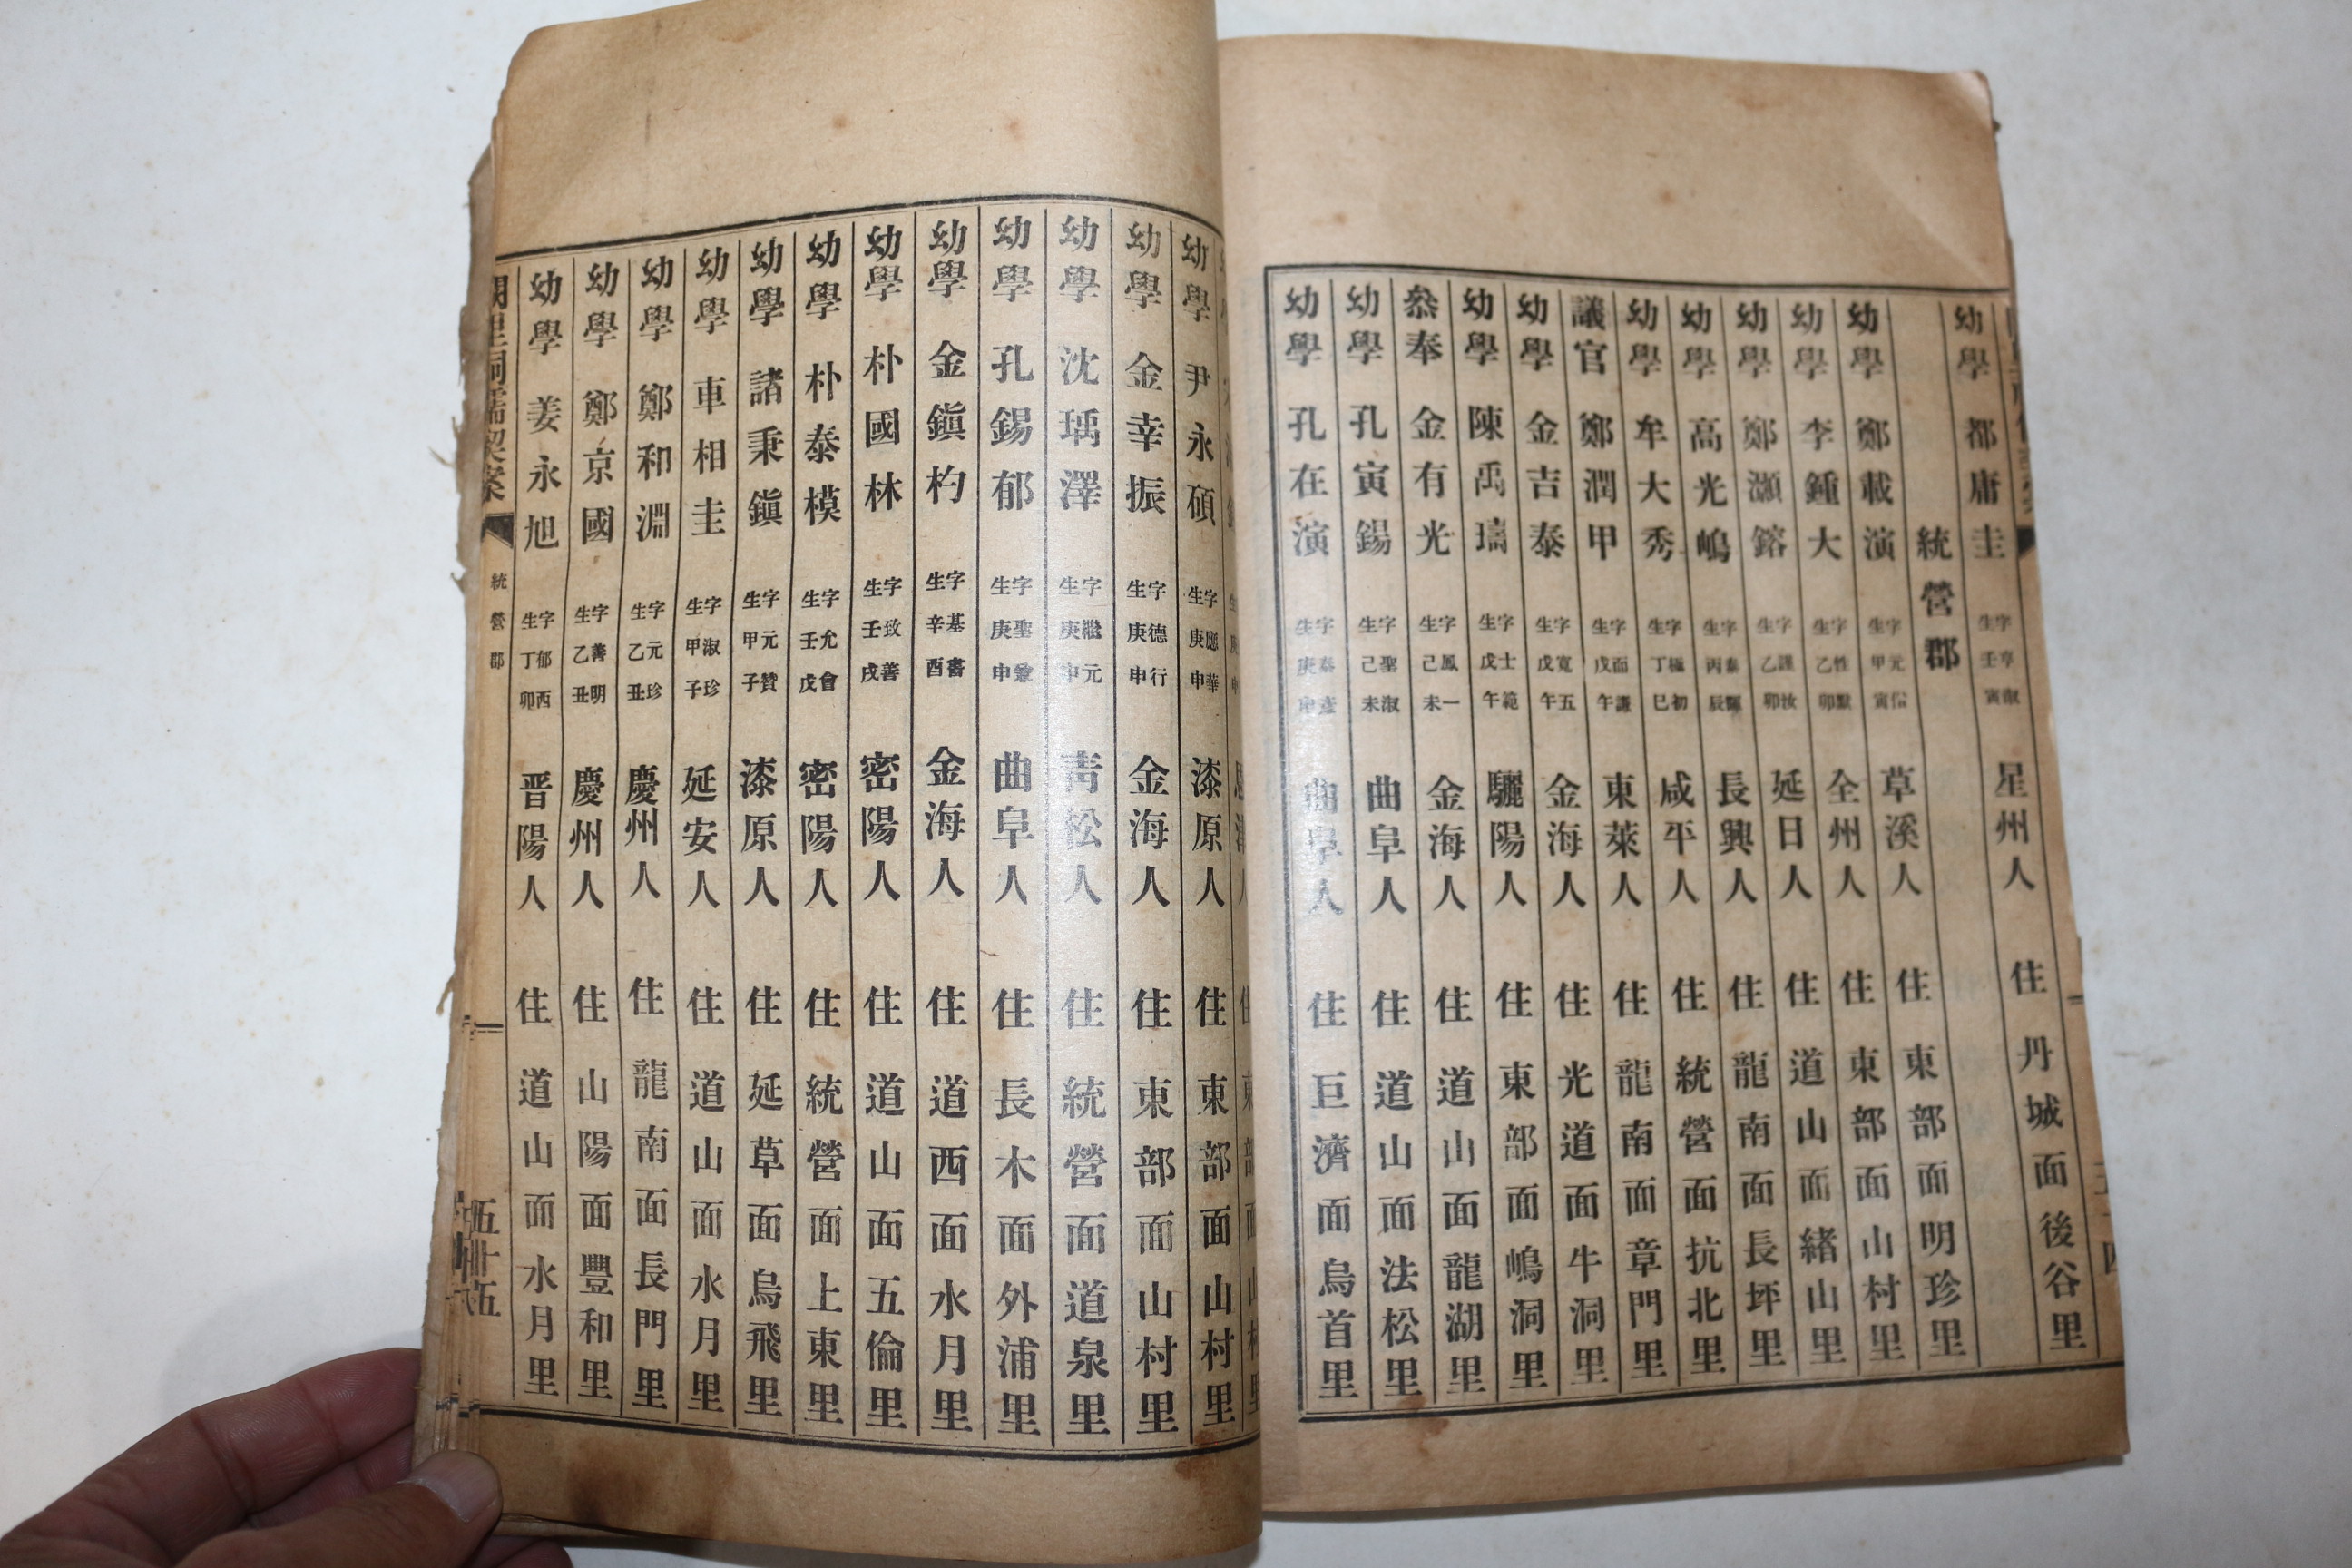 幼學 都庸圭 字享淑 生壬寅 星州人 住 丹城面後谷里
統營郡
幼學 鄭載演 字元信 生甲寅 草溪人 住 東部面明珍里
幼學 李鍾大 字性默 生乙卯 全州人 住 東部面山村里
幼學 鄭灝鎔 字謹汝 生乙卯 延日人 住 道山面緖山里
幼學 高光鳴 字泰輝 生丙辰 長興人 住 龍南面長坪里
幼學 牟大秀 字極初 生丁巳 咸平人 住 統營面抗北里
議官 鄭潤甲 字面謙 生戊午 東萊人 住 龍南面章門里
幼學 金吉泰 字寬五 生戊午 金海人 住 光道面牛洞里
幼學 陳禹瓗 字士範 生戊午 驪陽人 住 東部面鳴洞里
叅奉 金有光 字鳳一 生己未 金海人 住 道山面龍湖里
幼學 孔寅錫 字聖淑 生己未 曲阜人 住 道山面法松里
幼學 孔在演 字泰彥 生庚申 曲阜人 住 巨濟面烏首里
幼學 尹永碩 字應華 生庚申 漆原人 住 東部面山村里
幼學 金幸振 字德行 生庚申 金海人 住 東部面山村里
幼學 沈瑀澤 字繼元 生庚申 靑松人 住 統營面道泉里
幼學 孔錫郁 字聖兼 生庚申 曲阜人 住 長木面外浦里
幼學 金鎭杓 字基書 生辛酉 金海人 住 道西面水月里
幼學 朴國林 字致善 生壬戌 密陽人 住 道山面五倫里
幼學 朴泰模 字允會 生壬戊 密陽人 住 統營面上東里
幼學 諸秉鎭 字元贊 生甲子 漆原人 住 延草面烏飛里
幼學 車相圭 字淑珍 生甲子 延安人 住 道山面水月里
幼學 鄭和淵 字元珍 生乙丑 慶州人 住 龍南面長門里
幼學 鄭京國 字善明 生乙丑 慶州人 住 山陽面豐和里
幼學 姜永旭 字郁西 生丁卯 晋陽人 住 道山面水月里
闕里祠儒契案 統營郡 五十五